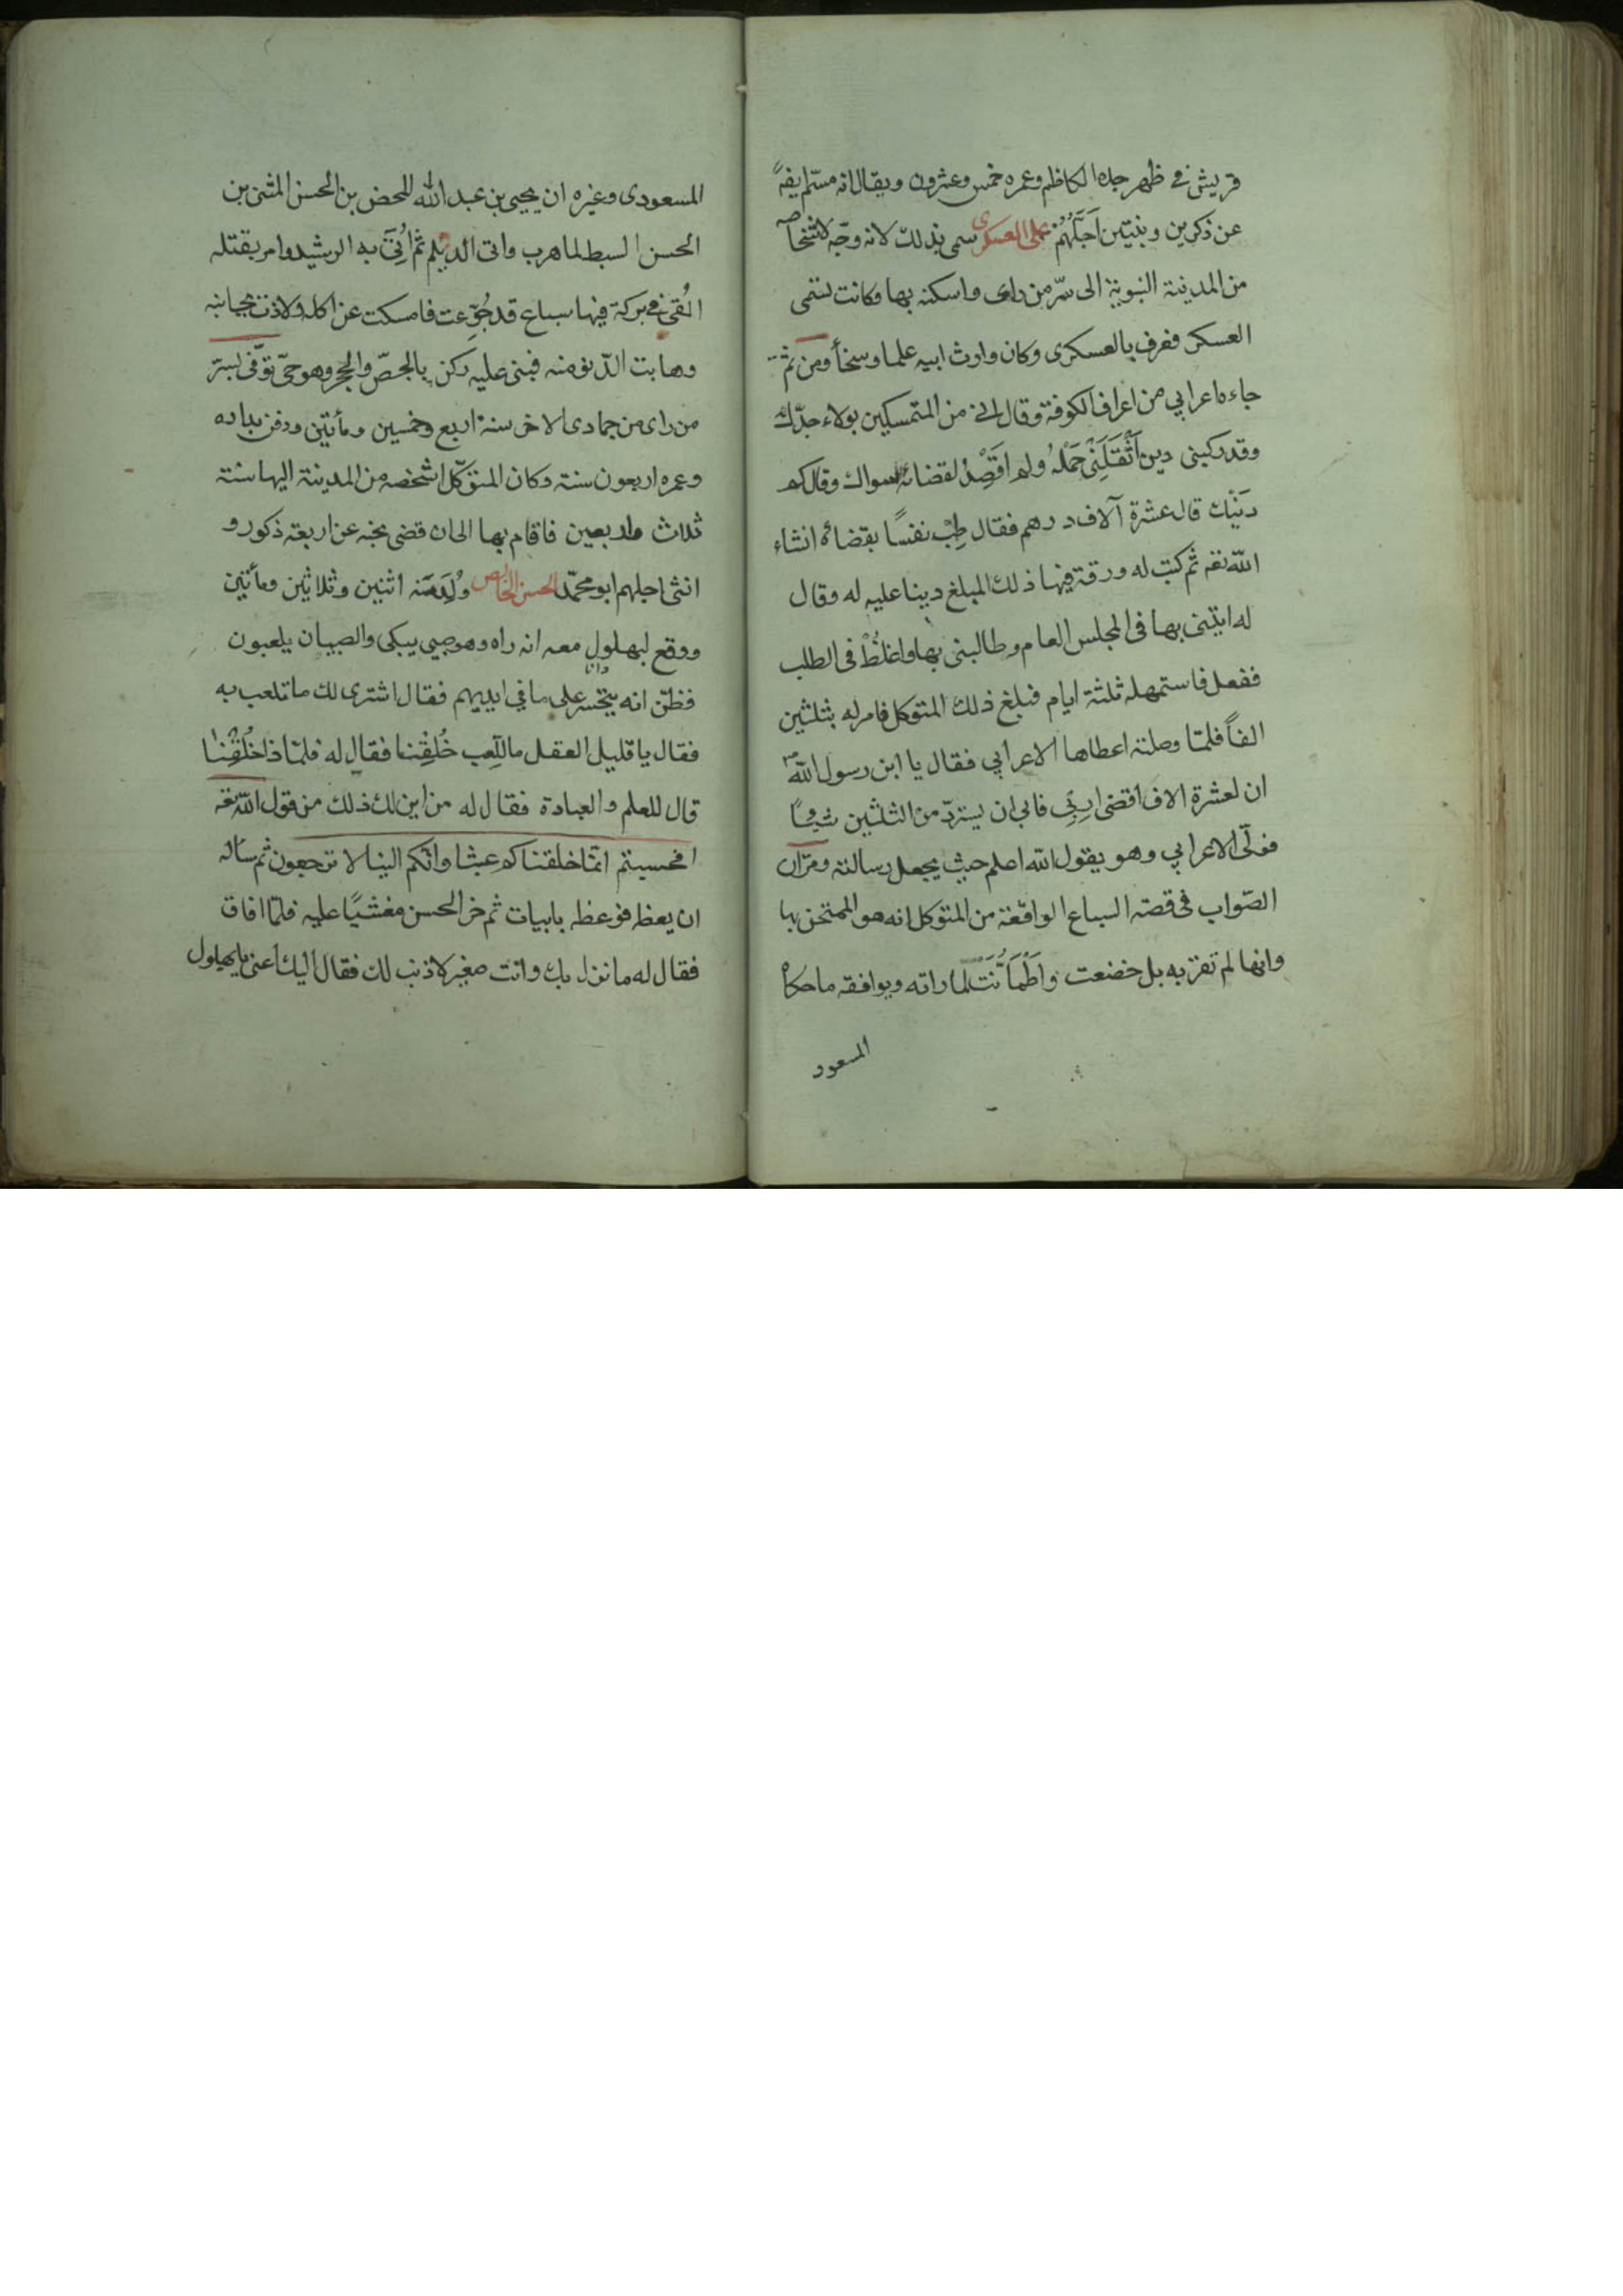 قريش في ظهر جده الكاظم وعمره خمس وعشرون ويقال انه مسّم ايضاً
عن ذكرين وبنتين اَجَلُّهُمْ على العسكرى سمى بذلك لانه وجّه لاشخاصه
من المدينة النبوية الى سرّ من راى واسكنه بها وكانت تسمى
العسكر فعرف بالعسكرى وكان وارث ابيه علما وسخاً ومن ثم
جاءه اعرابي من اعراف الكوفة وقال اني من المتمسكين بولاء جدّك
وقد ركبنى دين اَثْقَلَنِىْ حَمْلُهُ ولم اقصِدْ لقضائه سواك وقال كم
دَيْنك قال عشرة آلاف درهم فقال طِبْ نفسًا بقضائه انشاء
الله تعه ثم كتب له ورقة فيها ذلك المبلغ دينا عليه له وقال
له ايتنى بها فى المجلس العام وطالبنى بها واغلُظْ فى الطلب
ففعل فاستمهله ثلثة ايام فبلغ ذلك المتوكل فامر له بثلثين
الفاً فلمّا وصلته اعطاها الاعرابي فقال يا ابن رسول الله
ان لعشرة الاف اقضى اربي فابى ان يستردّ من الثلثين شيئاً
فولّى الاعرابي وهو يقول الله اعلم حيث يجعل رسالته ومرّان
الصّواب فى قصة السباع الواقعة من المتوكل انه هو الممتحن بها
وانها لم تقربه بل خضعت واطمأنّت لما راته ويوافقه ماحكاه
المسعود
المسعودى وغيره ان يحيى بن عبد الله المحض بن الحسن المثنى بن
الحسن السبط لما هرب واتى الديلم ثم اُتِىَ به الرشيد وامر بقتله
اُلقى في بركة فيها سباع قد جُوِّعت فامسكت عن اكله ولاذت بجانبه
وهابت الدّنو منه فبنى عليه ركن بالجصّ والحجر وهو حىّ توّفى بسرّ
من راى من جمادى الاخر سنة اربع وخمسين ومأتين ودفن بداره
وعمره اربعون سنة وكان المتوكّل اشخصه من المدينة اليها سنة
ثلاث واربعين فاقام بها الى ان قضى نحبه عن اربعة ذكور و
انثى اجلهم ابو محمّد الحسن الخالص وُلِدَ سَنة اثنين وثلاثين ومأتين
ووقع لبهلول معه انه راه وهو صبى يبكى والصبيان يلعبون
فظنّ انه يتحسر على ما في ايديهم فقال اشترى لك ما تلعب به
فقال يا قليل العقل ما للَّعِب خُلِقْنا فقال له فلمّا ذا خُلِقْنا
قال للعلم والعبادة فقال له من اين لك ذلك من قول الله تعه
افحسبتم انمّا خلقناكم عبثا وانّكم الينا لا ترجعون ثم ساله
ان يعظه فوعظه بابيات ثم خر الحسن مغشيًا عليه فلمّا افاق
فقال له ما نزل بك وانت صغير لا ذنب لك فقال اليك عنى يا بهلول
وانا